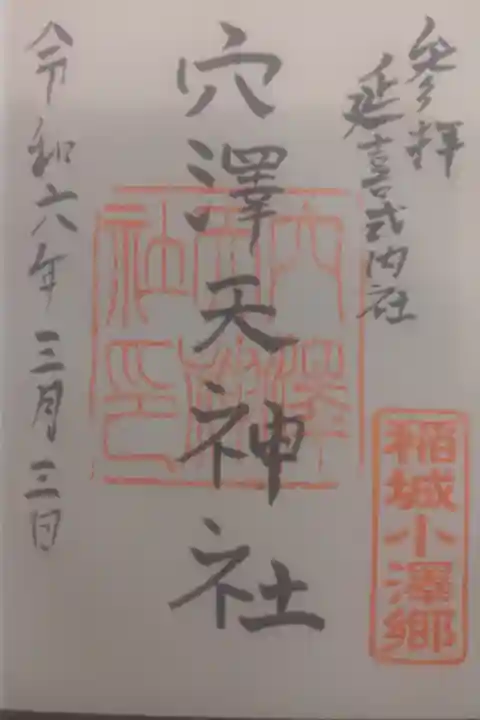 参拝
延喜式内社
稲城小澤郷
穴澤天神社
穴澤
天神
社印
令和六年三月三日